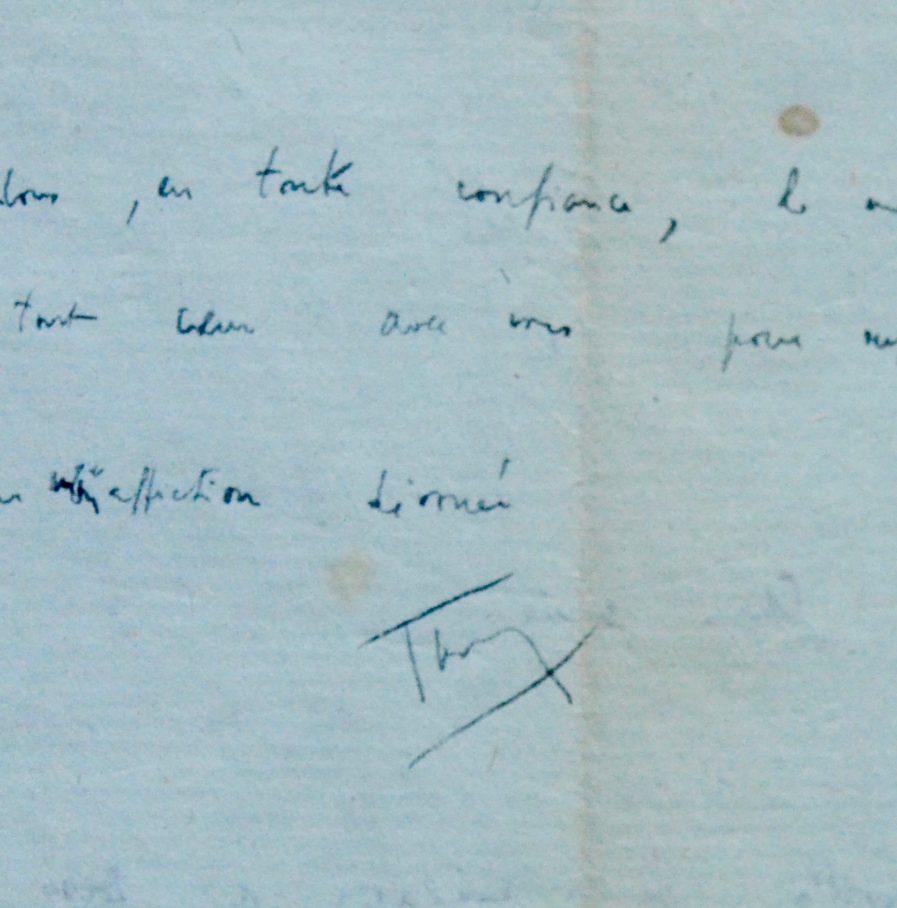 , en toute confiance, de
tout cœur avec vous pour
affection dévouée